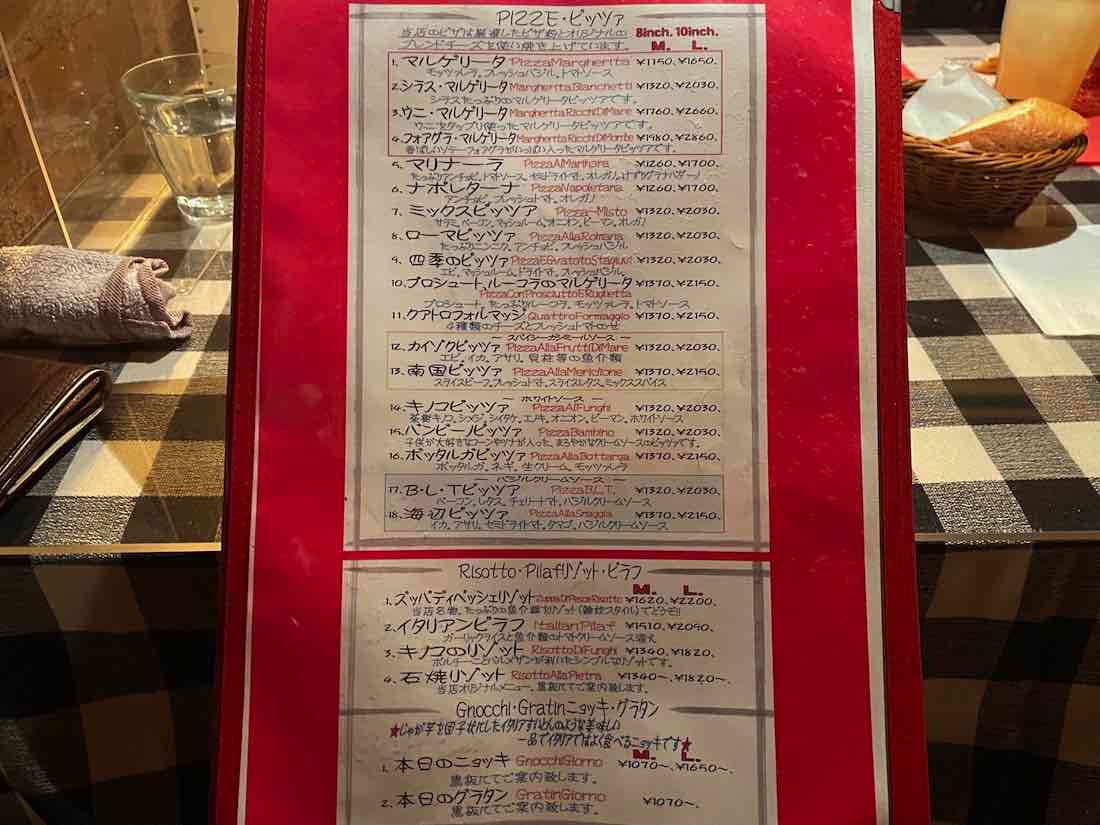 PIZZE・ピッツァ
当店のピザは厳選したピザ粉とオリジナルの 8inch. 10inch.
ブレンドチーズを使い焼き上げています。 M. L.
1. マルゲリータ PizzaMargherita ¥1150、¥1650、
モッツァレラ、フレッシュバジル、トマトソース
2. シラス・マルゲリータ MargheritaBianchetti ¥1320、¥2030、
シラスたっぷりのマルゲリータピッツァです。
3. ウニ・マルゲリータ MargheritaRicchiDiMare ¥1760、¥2660、
ウニをタップリ使ったマルゲリータピッツァです。
4. フォアグラ・マルゲリータ MargheritaRicchiDiMonte ¥1980、¥2860、
香ばしいソテーフォアグラがいっぱい入ったマルゲリータピッツァです。
5. マリナーラ PizzaAlMarinara ¥1260、¥1700、
たっぷりアンチョビ、トマトソース、セミドライトマト、オレガノ、
6. ナポレターナ PizzaNapoletana ¥1260、¥1700、
アンチョビ、フレッシュトマト、オレガノ
7. ミックスピッツァ Pizza-Misto ¥1320、¥2030、
サラミ、ベーコン、マッシュルーム、オニオン、ピーマン、オレガノ
8. ローマピッツァ PizzaAllaRomana ¥1320、¥2030、
たっぷりニンニク、アンチョビ、フレッシュバジル
9. 四季のピッツァ ¥1320、¥2030、
エビ、マッシュルーム、ドライトマト、フレッシュバジル
10. プロシュート、ルーコラのマルゲリータ ¥1370、¥2150、
PizzaConProsciuttoERughetta
プロシュート、たっぷりルーコラ、モッツァレラ、トマトソース
11. クアトロフォルマッジ QuattroFormaggio ¥1370、¥2150、
4種類のチーズとフレッシュトマトのせ
〜 スパイシーガーリックソース 〜
12. カイゾクピッツァ PizzaAllaFruttiDiMare ¥1320、¥2030、
エビ、イカ、アサリ、貝柱等の魚介類
13. 南国ピッツァ PizzaAllaMeridione ¥1370、¥2150、
スライスビーフ、フレッシュトマト、スライスレタス、ミックススパイス
〜 ホワイトソース 〜
14. キノコピッツァ PizzaAlFunghi ¥1320、¥2030、
茶樹キノコ、シメジ、シイタケ、エノキ、オニオン、ピーマン、ホワイトソース
15. バンビーノピッツァ PizzaBambino ¥1320、¥2030、
子供が大好きなコーンやツナが入った、まろやかなクリームソースのピッツァです。
16. ボッタルガピッツァ PizzaAllaBottarga ¥1370、¥2150、
ボッタルガ、ネギ、生クリーム、モッツァレラ
〜 バジルクリームソース 〜
17. B・L・Tピッツァ PizzaB.L.T. ¥1320、¥2030、
ベーコン、レタス、チェリートマト、バジルクリームソース
18. 海辺ピッツァ PizzaAllaSpiaggia ¥1370、¥2150、
イカ、アサリ、セミドライトマト、タマゴ、バジルクリームソース
Risotto・Pilafリゾット・ピラフ
M. L.
1. ズッパディペッシェリゾット ZuppaDiPesceRisotto ¥1620、¥2200、
当店名物、たっぷりの魚介類をリゾット(雑炊スタイル)でどうぞ!!
2. イタリアンピラフ ItalianPilaf ¥1510、¥2090、
ガーリックライスと魚介類のトマトクリームソース添え
3. キノコのリゾット RisottoDiFunghi ¥1340、¥1820、
ポルチーニとパルメザンが利いたシンプルなリゾットです。
4. 石焼リゾット RisottoAllaPietra ¥1340〜、¥1820〜、
当店オリジナルメニュー、黒板にてご案内致します。
Gnocchi・Gratinニョッキ・グラタン
★じゃが芋を団子状にしたイタリアすいとんのような美味しい
一品でイタリアではよく食べるニョッキです★
M. L.
1. 本日のニョッキ GnocchiGiorno ¥1070〜、¥1650〜、
黒板にてご案内致します。
2. 本日のグラタン GratinGiorno ¥1070〜、
黒板にてご案内致します。